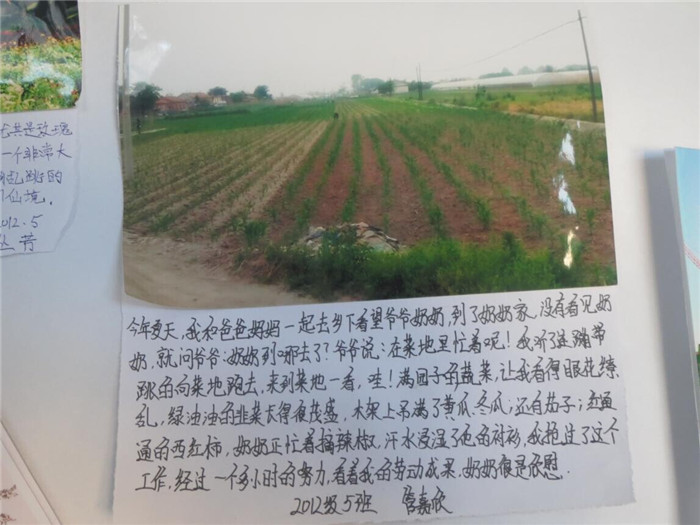 一个非常大
仙境。
2012.5
今年夏天,我和爸爸妈妈一起去乡下看望爷爷奶奶,到了奶奶家,没有看见奶
奶,就问爷爷:奶奶到哪去了?爷爷说:在菜地里忙着呢!我听了连蹦带
跳的向菜地跑去,来到菜地一看,哇!满园子的蔬菜,让我看得眼花缭
乱,绿油油的韭菜长得很茂盛,木架上吊满了黄瓜、冬瓜;还有茄子;红通
通的西红柿,奶奶正忙着摘辣椒,汗水浸湿了她的衬衫,我抢过了这个
工作,经过一个多小时的努力,看着我的劳动成果,奶奶很是欣慰.
2012级5班 管嘉欣